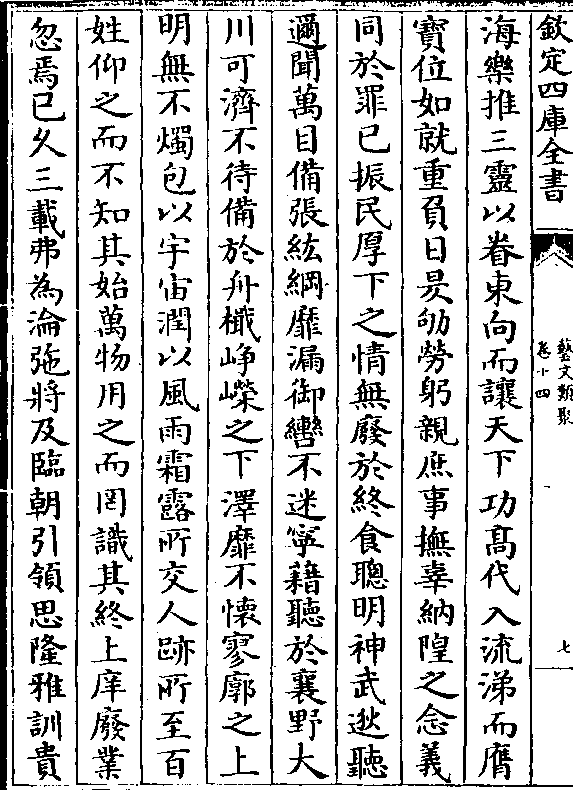 欽定四庫全書
藝文類聚
卷十四
七
海樂推三靈以眷東向而讓天下功髙代入流涕而膺
寶位如就重負日昃劬勞躬親庶事撫辜納隍之念義
同於罪已振民厚下之情無廢於終食聰明神武逖聽
邇聞萬目備張紘綱靡漏御轡不迷寧藉聽於襄野大
川可濟不待備於舟檝崢嶸之下澤靡不懷寥廓之上
明無不燭包以宇宙潤以風雨霜露所交人跡所至百
姓仰之而不知其始萬物用之而罔識其終上庠廢業
忽焉已久三載弗為淪弛將及臨朝引領思隆雅訓貴